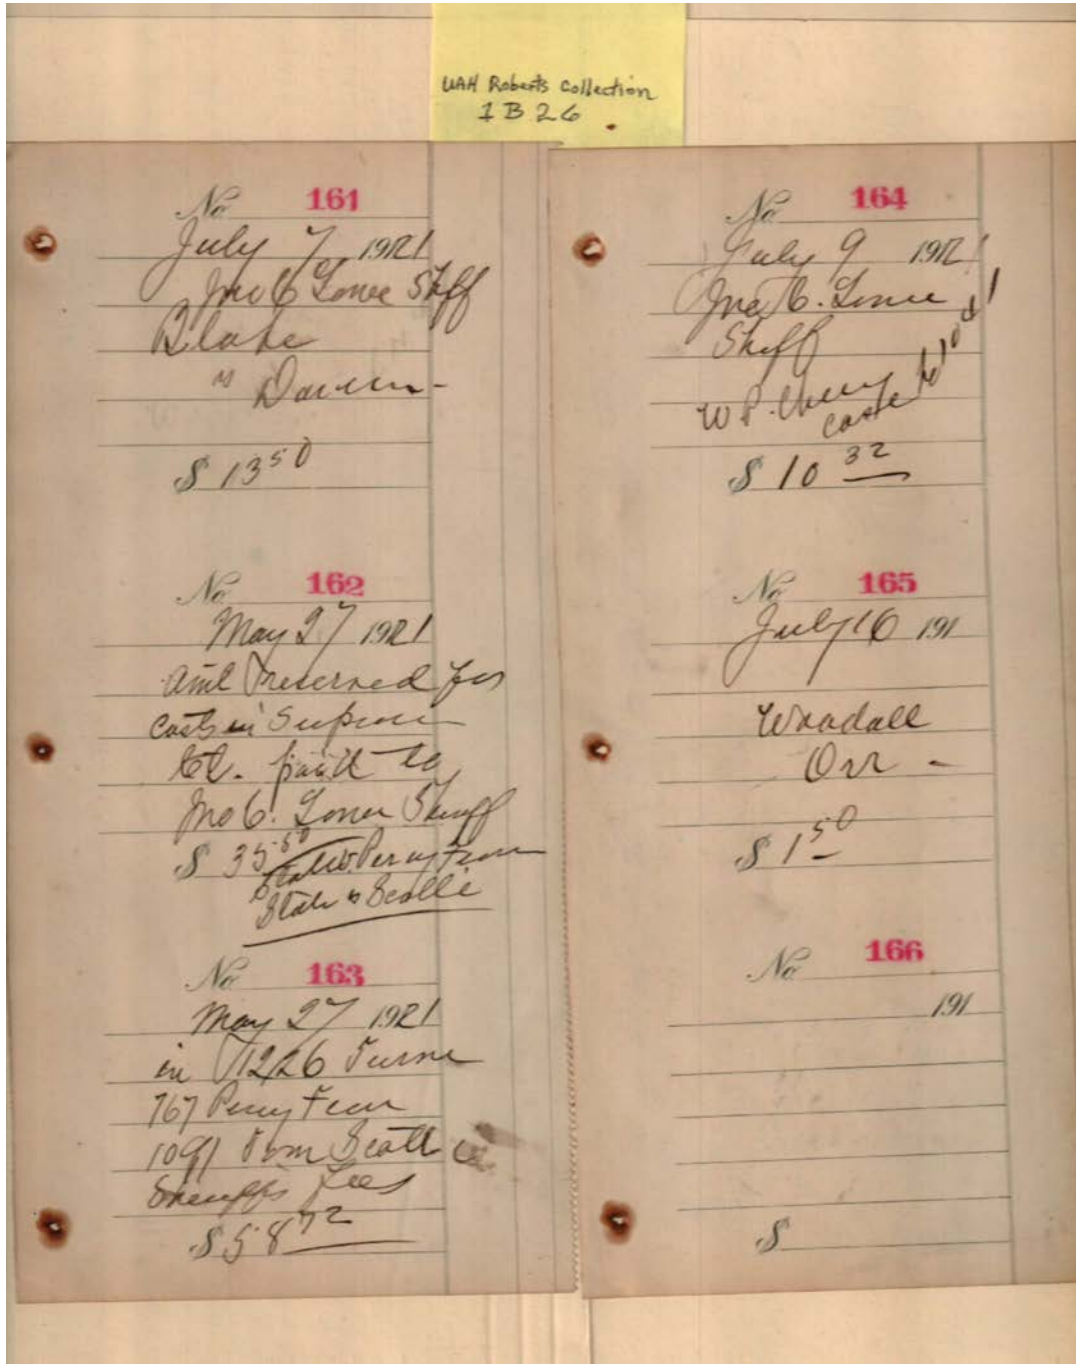 UAH Roberts Collection
1 B 26
No 161
July 7 1921
Jno C Loner Shff
Blake
vs
$ 13 50
No 162
May 27 1921
Amt reserved for
Costs in Supreme
Ct. paid to
Jno C. Loner Sheriff
$ 35 50
State vs Perry Fearn
State vs
No 163
May 27 1921
in 1226 Turne
767 Perry Fearn
1091 Tom Scott
Sheriffs Fees
$ 58 72
No 164
July 9 1921
Jno C. Loner
Shff
W P.
$ 10 32
No 165
July 16 191
Woodall
Orr -
$ 1 50
No 166
191
$